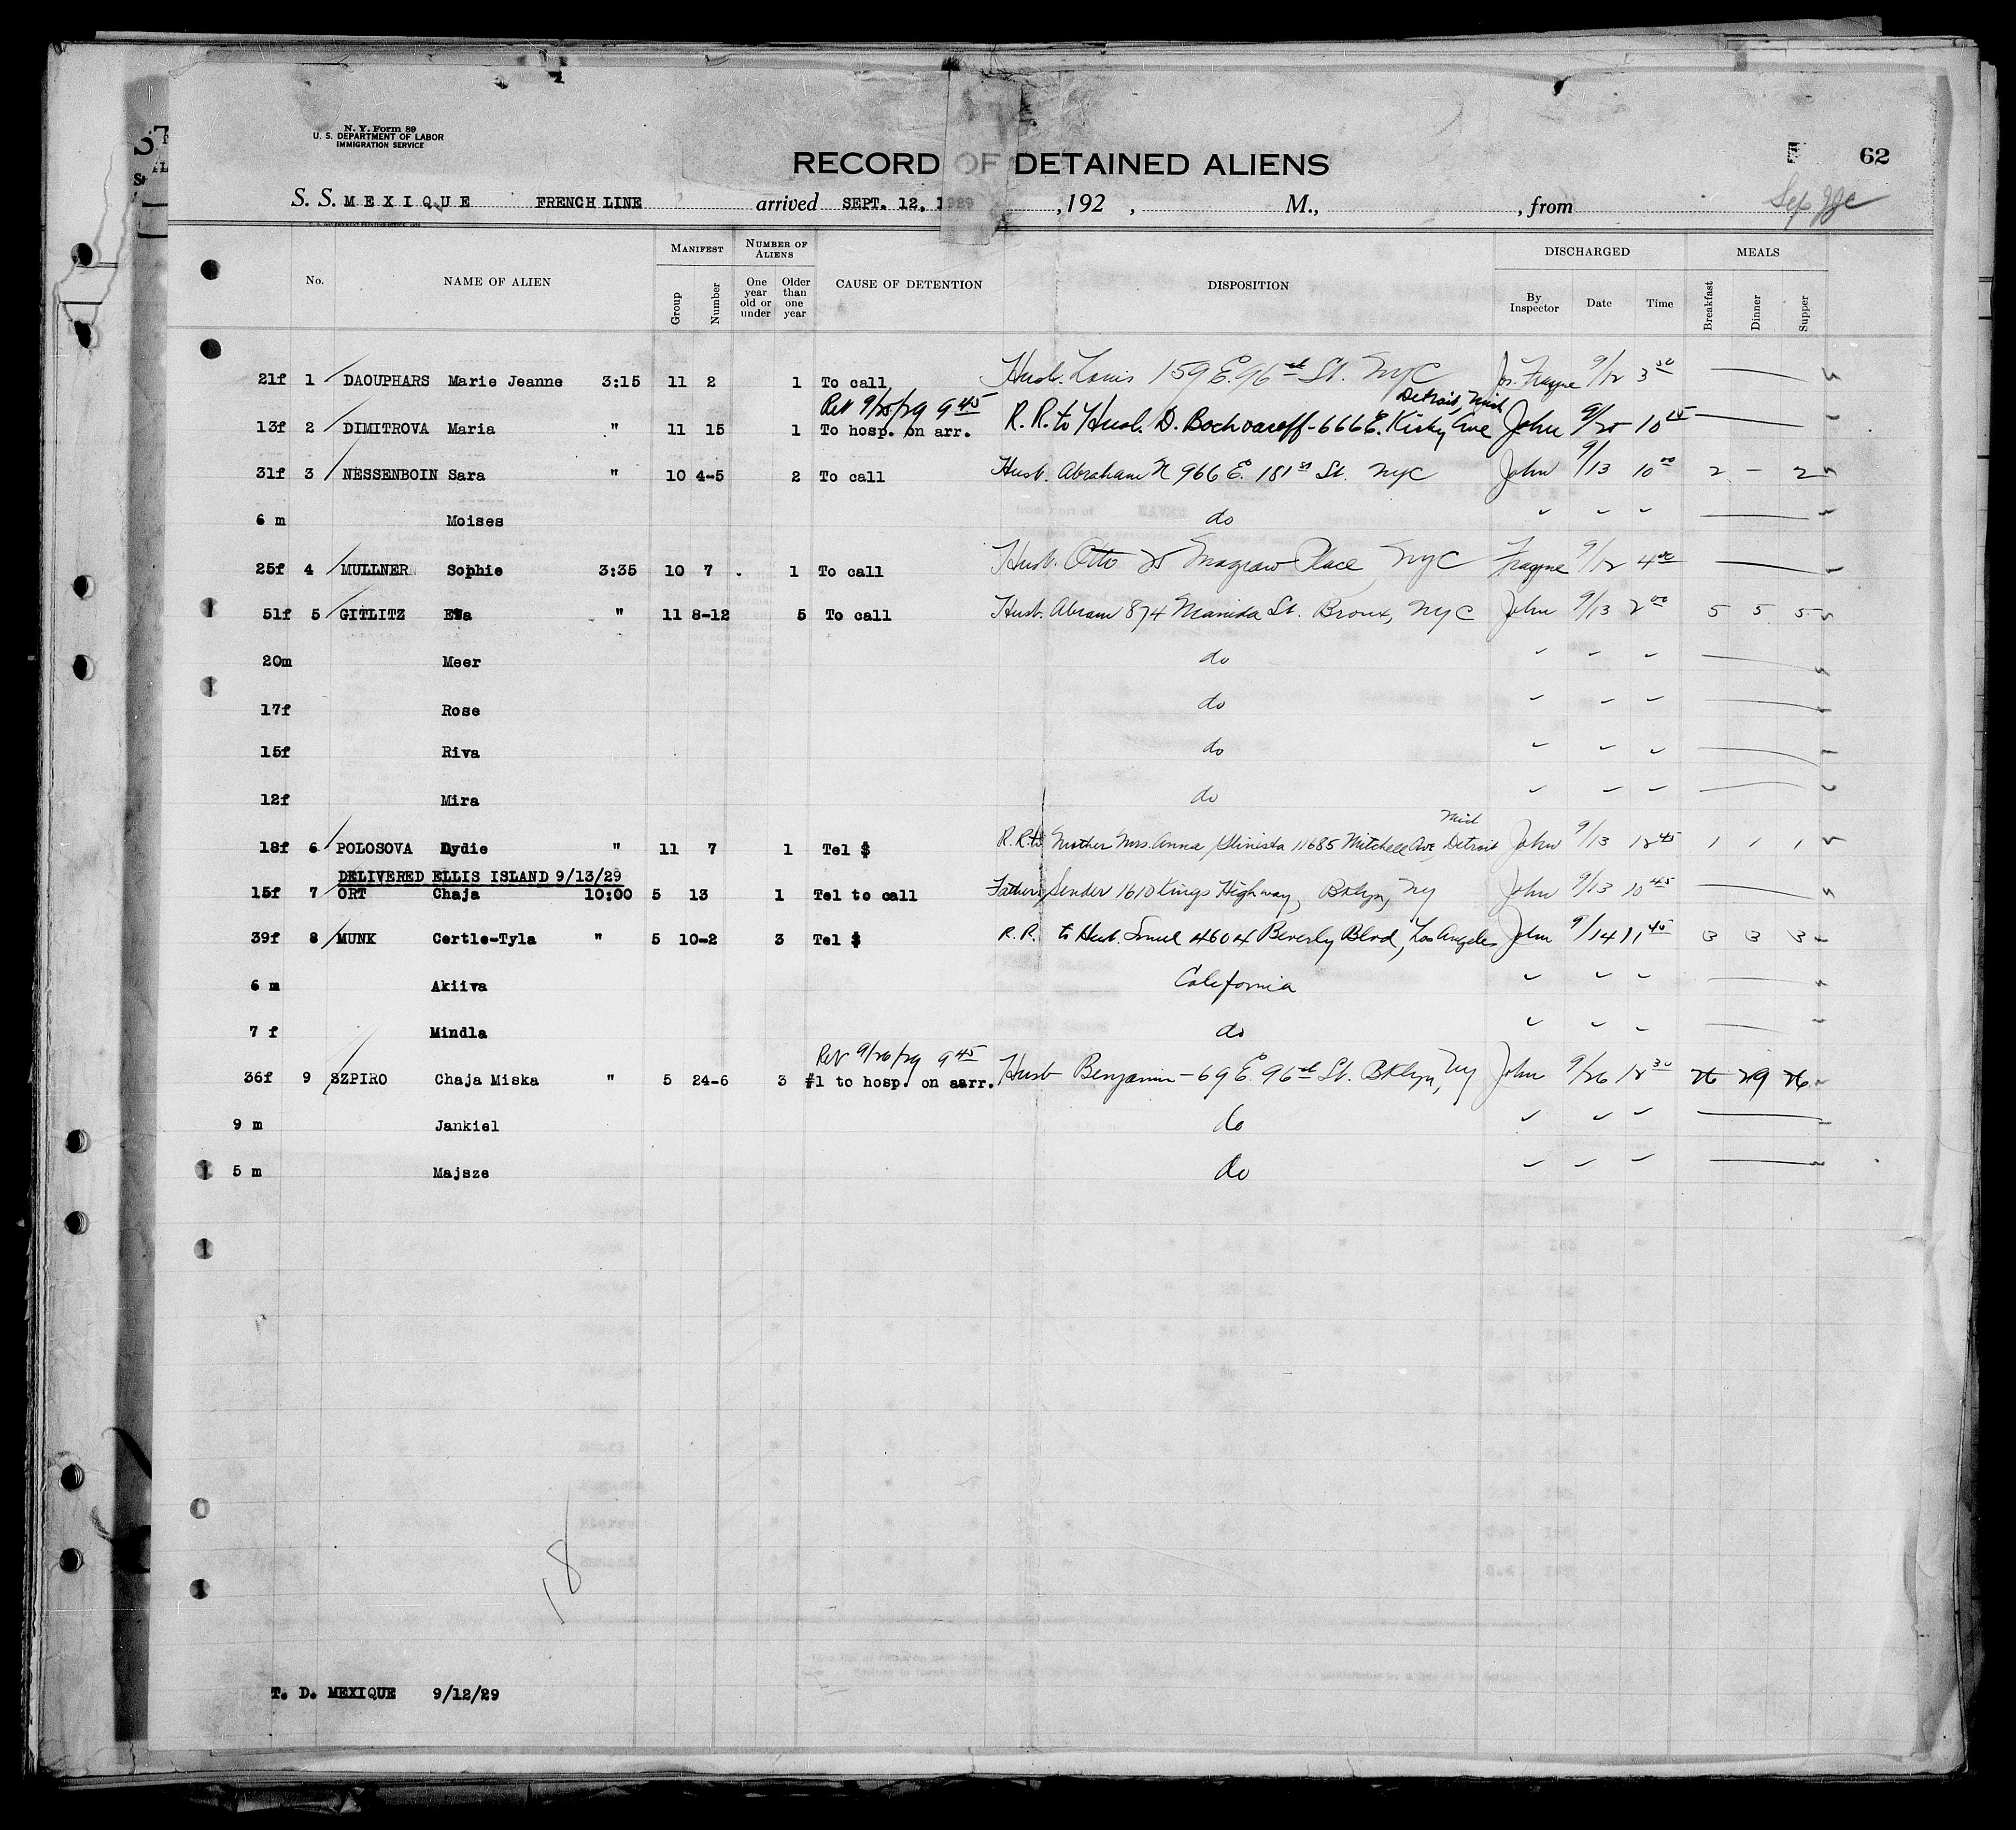 N. Y. Form 89
U. S. DEPARTMENT OF LABOR
IMMIGRATION SERVICE
RECORD OF DETAINED ALIENS
62
S. S. MEXIQUE FRENCH LINE arrived SEPT. 12, 1929 , 192 , M., , from
No. NAME OF ALIEN MANIFEST Group Number NUMBER OF ALIENS One year old or under Older than one year CAUSE OF DETENTION DISPOSITION DISCHARGED By Inspector Date Time MEALS Breakfast Dinner Supper
21f 1 DAOUPHARS Marie Jeanne 3:15 11 2 1 To call Husb. Louis 159 E. 96th St. NYC Frayne 9/12 3 30
Ret 9/25/29 9 45 Detroit, Mich
13f 2 DIMITROVA Maria " 11 15 1 To hosp. on arr. R. R. to Husb. D. Bochvaroff - 666 E. Kirby Ave John 9/25 10 15
31f 3 NESSENBOIN Sara " 10 4-5 2 To call Husb. Abraham N 966 E. 181st St. NYC John 9/13 10 00 2 - 2
6 m Moises do
25f 4 MULLNER Sophie 3:35 10 7 1 To call Husb. Otto 25 Magraw Place, NYC Frayne 9/12 4 00
51f 5 GITLITZ Eva " 11 8-12 5 To call Husb. Abram 874 Manida St. Bronx, NYC John 9/13 2 00 5 5 5
20m Meer do
17f Rose do
15f Riva do
12f Mira do
Mich
18f 6 POLOSOVA Lydie " 11 7 1 Tel $ R.R. to Mother Mrs. Anna 11685 Mitchell Ave, Detroit John 9/13 12 45 1 1 1
DELIVERED ELLIS ISLAND 9/13/29
15f 7 ORT Chaja 10:00 5 13 1 Tel to call Father, Sender 1610 Kings Highway, Bklyn, NY John 9/13 10 45
39f 8 MUNK Certle-Tyla " 5 10-2 3 Tel $ R. R. to Husb. Srul 4604 Beverly Blvd, Los Angeles John 9/14 11 40 3 3 3
6 m Akiiva California
7 f Mindla do
Ret 9/26/29 9 45
36f 9 SZPIRO Chaja Miska " 5 24-6 3 #1 to hosp. on aarr. Husb Benjamin - 69 E. 96th St. Bklyn, NY John 9/26 12 30 26 29 26
9 m Jankiel do
5 m Majsze do
18
T. D. MEXIQUE 9/12/29